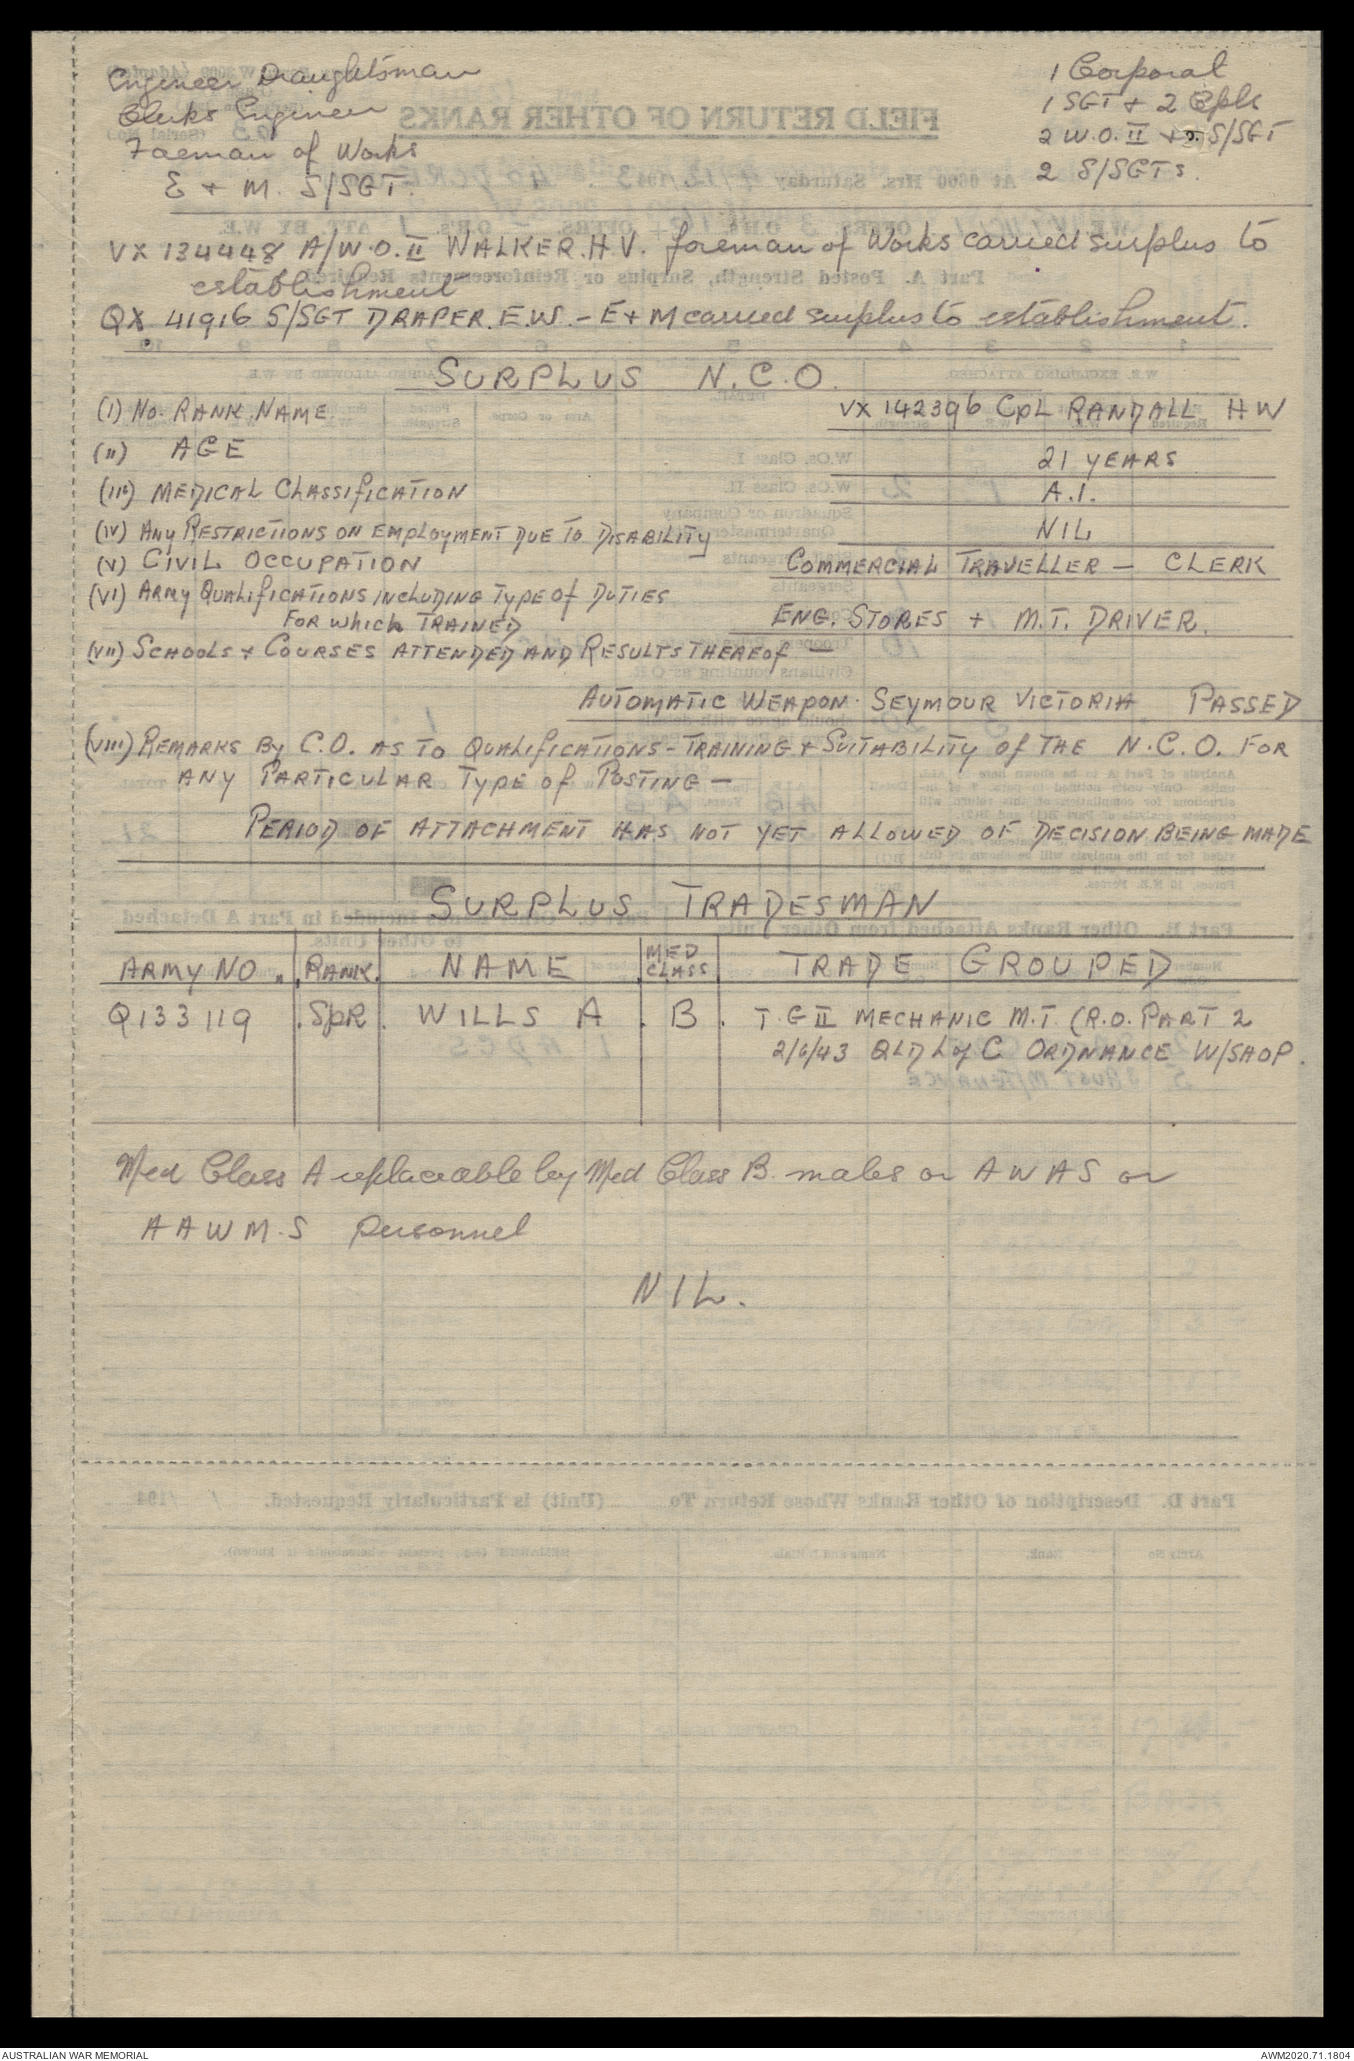 Engineer Draughtsman 1 Corporal
Clerks Engineer 1 SGT + 2 Cpls
Foreman of Works 2 W.O. II + S/SGT
E + M. S/SGT. 2 S/SGTs.
VX 134448 A/W.O. II WALKER. H.V. foreman of Works carried surplus to
establishment
QX 41916 S/SGT DRAPER. E.W. - E + M carried surplus to establishment.
SURPLUS N.C.O.
(I) No. RANK. NAME. VX 142396 CpL RANDALL HW
(II) AGE 21 YEARS
(III) MEDICAL CLASSIFICATION A.1.
(IV) ANY RESTRICTIONS ON EMPLOYMENT DUE TO DISABILITY NIL
(V) CIVIL OCCUPATION COMMERCIAL TRAVELLER - CLERK
(VI) ARMY QUALIFICATIONS INCLUDING TYPE OF DUTIES
FOR WHICH TRAINED ENG. STORES + M.T. DRIVER.
(VII) SCHOOLS + COURSES ATTENDED AND RESULTS THEREOF -
AUTOMATIC WEAPON. SEYMOUR VICTORIA PASSED
(VIII) REMARKS BY C.O. AS TO QUALIFICATIONS - TRAINING + SUITABILITY OF THE N.C.O. FOR
ANY PARTICULAR TYPE OF POSTING -
PERIOD OF ATTACHMENT HAS NOT YET ALLOWED OF DECISION BEING MADE
SURPLUS TRADESMAN
ARMY NO. RANK. NAME MED CLASS TRADE GROUPED
Q133119 SpR. WILLS A B T.G II MECHANIC M.T. (R.O. PART 2
2/6/43 QLD L of C ORDNANCE W/SHOP.
Med Class A replaceable by Med Class B. males or AWAS or
AAWM.S personnel
NIL.
AUSTRALIAN WAR MEMORIAL AWM2020.71.1804